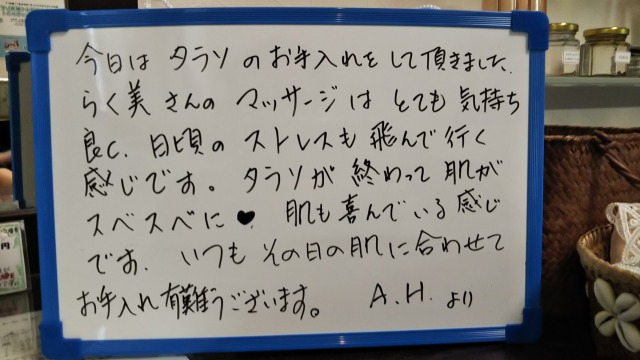 今日は タラソ のお手入れをして頂きました.
らく美さんの マッサージは とても 気持ち
良く. 日頃の ストレスも 飛んで 行く
感じです。 タラソが 終わって 肌が
スベスベに♥. 肌も喜んでいる感じ
です. いつも その日の肌に合わせて
お手入れ 有難うございます。 A.H. より
円